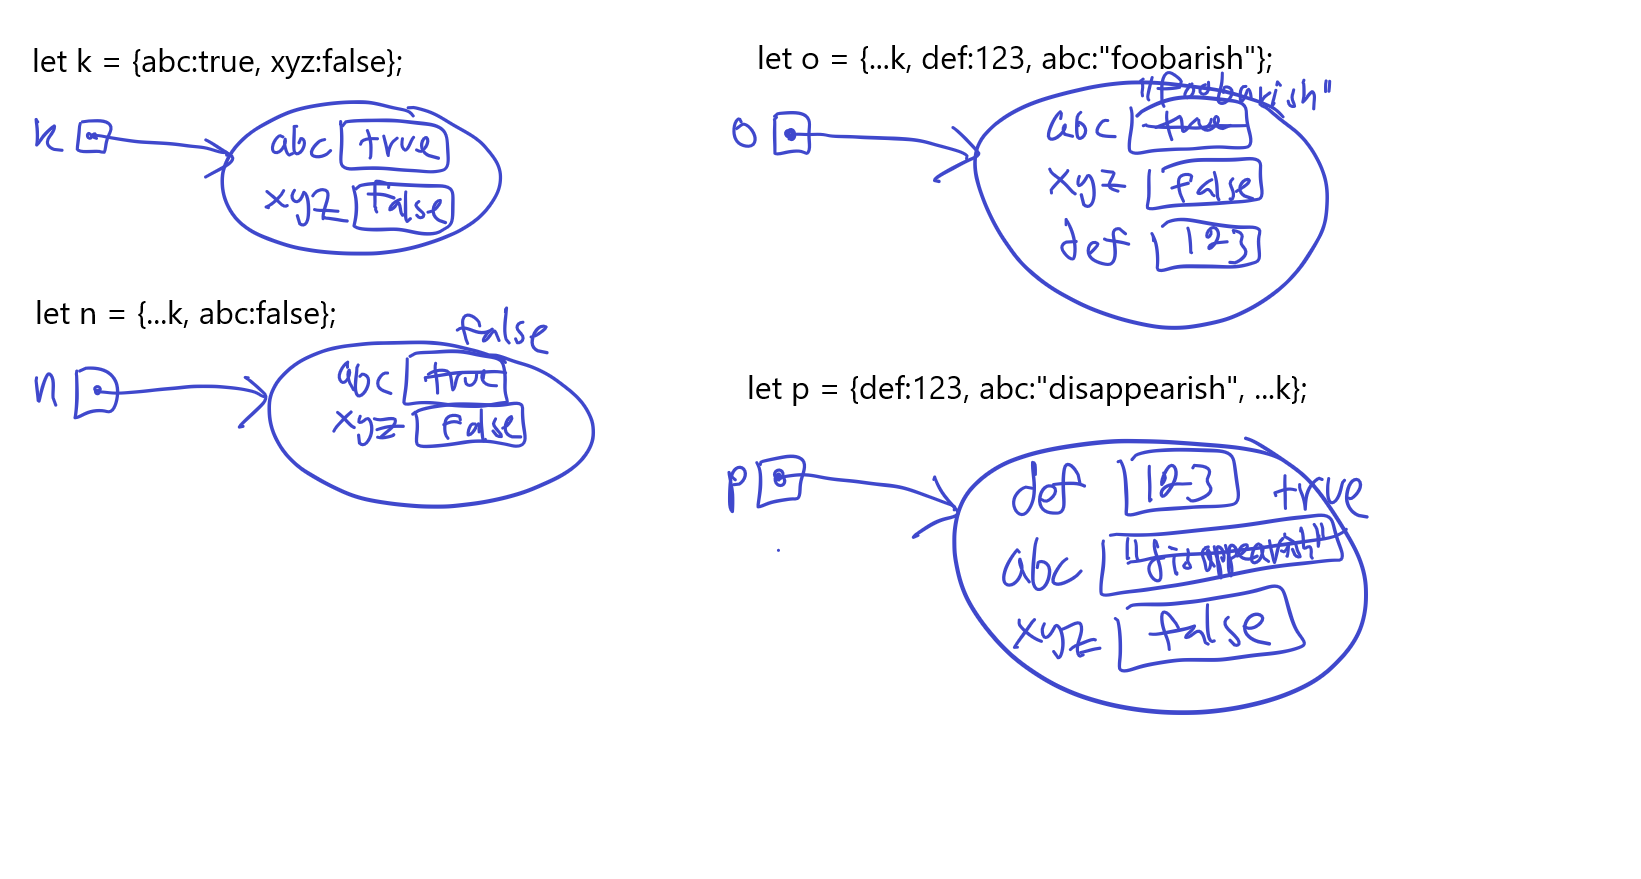 let k = {abc:true, xyz:false};
k
abc true
xyz false
let n = {...k, abc:false};
false
n
abc true
xyz false
let o = {...k, def:123, abc:"foobarish"};
"foobarish"
o
abc true
xyz false
def 123
let p = {def:123, abc:"disappearish", ...k};
p
def 123
true
abc "disappearish"
xyz false